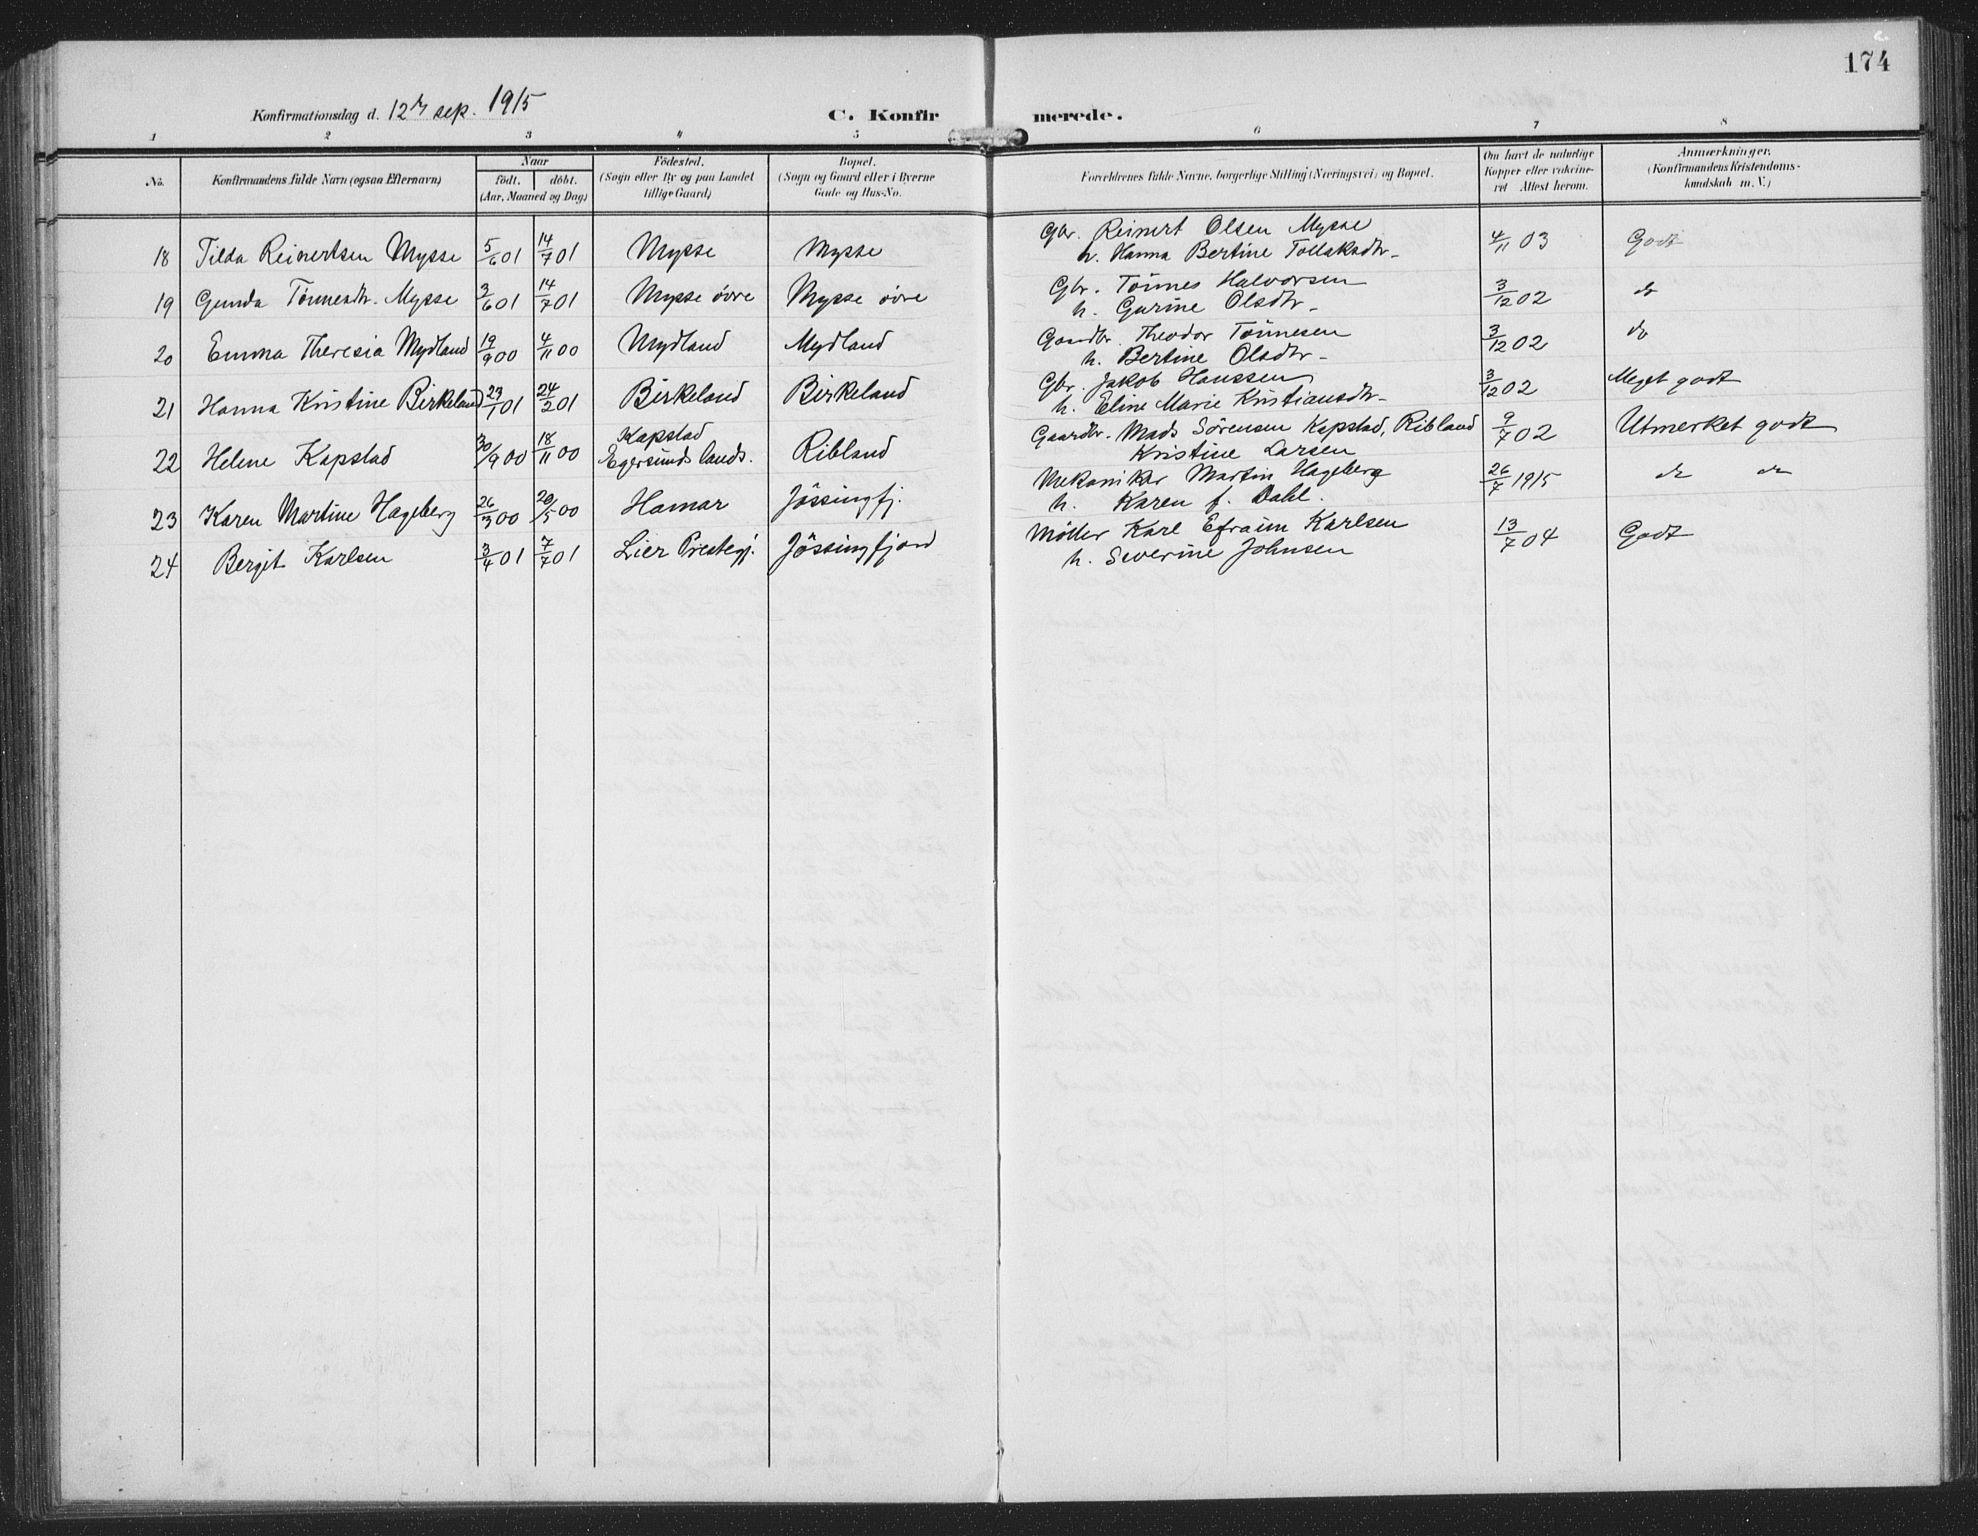 174
Konfirmationsdag d. 12te sep. 1915
C. Konfirmerede.
1 2 3 4 5 6 7 8
No. Konfirmandens fulde Navn (ogsaa Efternavn) Naar födt. döbt. (Aar, Maaned og Dag) Födested. (Sogn eller By og paa Landet tillige Gaard) Bopæl. (Sogn og Gaard eller i Byerne Gade og Hus-No. Forældrenes fulde Navne, borgerlige Stilling (Næringsvei) og Bopæl. Om havt de naturlige Kopper eller vakcineret Attest herom. Anmærkninger. (Konfirmandens Kristendomskundskab m. V.)
18 Tilda Reinertsen Mysse 5/6 01 14/7 01 Mysse Mysse Gbr. Reinert Olsen Mysse 4/11 03 Godt
h. Hanna Bertine Tollaksdtr.
19 Gunda Tönnesdtr. Mysse 3/6 01 14/7 01 Mysse övre Mysse övre Gbr. Tönnes Halvorsen 3/12 02 do
h. Gurine Olsdtr.
20 Emma Theresia Mydland 19/9 00 4/11 00 Mydland Mydland Gaardbr. Theodor Tönnesen 3/12 02 do
h. Bertine Olsdtr.
21 Hanna Kristine Birkeland 23/1 01 24/2 01 Birkeland Birkeland Gbr. Jakob Hanssen 3/12 02 Meget godt
h. Eline Marie Kristiansdtr.
22 Helene Kapstad 30/9 00 18/11 00 Kapstad Egersunds lands. Ribland Gaardbr. Mads Sörensen Kapstad, Ribland 9/7 02 Utmerket godt
Kristine Larsen
23 Karen Martine Hageberg 26/3 00 20/5 00 Hamar Jössingfj. Mekaniker Martin Hageberg 26/7 1915 do do
h. Karen f. Dahl.
24 Bergit Karlsen 3/4 01 7/7 01 Lier Prestegj. Jössingfjord Möller Karl Efraim Karlsen 13/7 04 Godt
h. Severine Johnsen